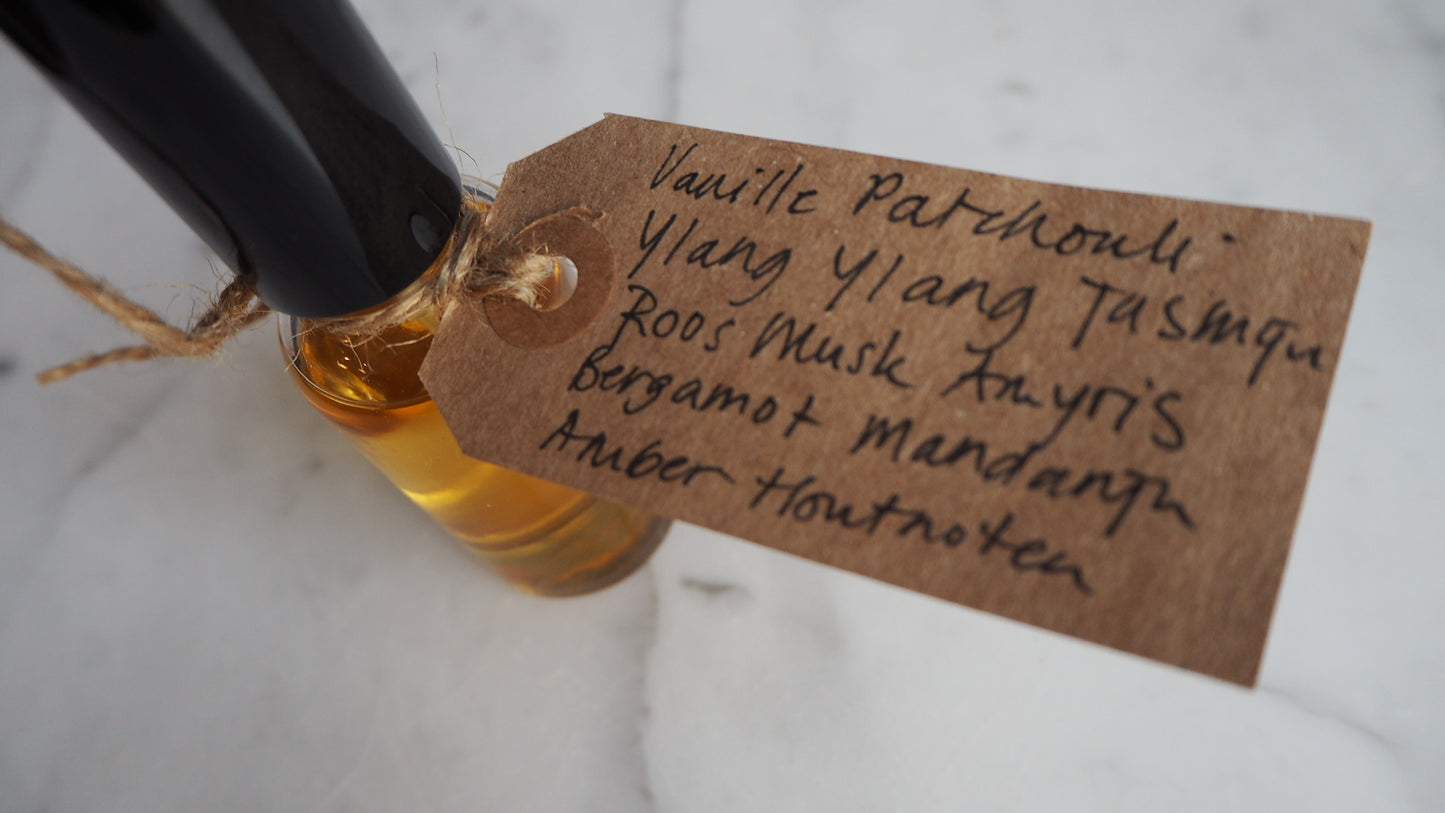 Vanille Patchouli
Ylang Ylang Jasmijn
Roos Musk Amyris
Bergamot Mandarijn
Amber Houtnoten